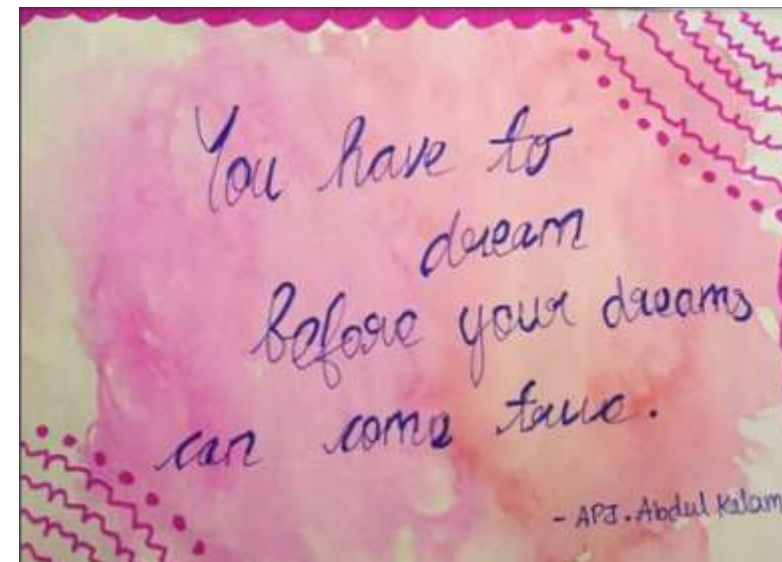 You have to
dream
before your dreams
can come true.
- APJ. Abdul Kalam